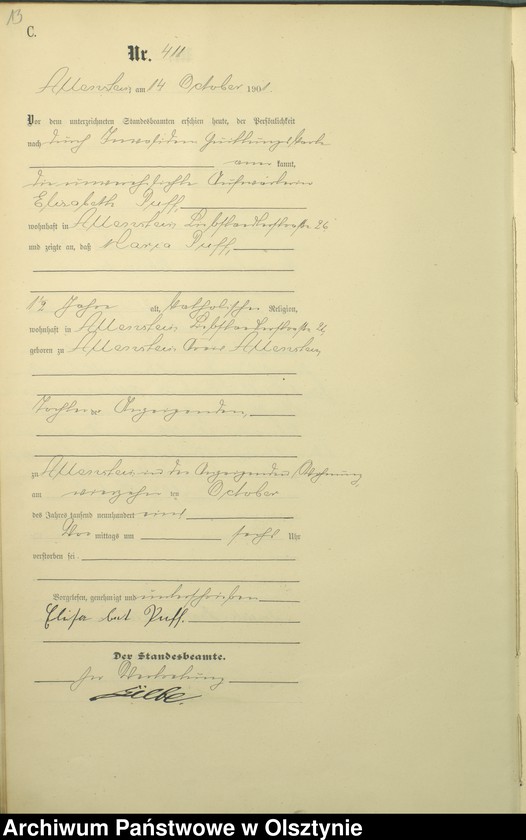 13
C.
Nr. 411
Allenstein am 14 October 1901.
Vor dem unterzeichneten Standesbeamten erschien heute, der Persönlichkeit
nach durch Invaliden Quittungskarte
aner kannt,
die unverehelichte Aufwärterin
Elisabeth Puff,
wohnhaft in Allenstein, Liebstaedterstraße 26
und zeigte an, daß Maria Puff,
1/2 Jahre alt, katholischer Religion,
wohnhaft in Allenstein, Liebstaedterstraße 26,
geboren zu Allenstein Kreis Allenstein,
Tochter der Anzeigenden,
zu Allenstein in der Anzeigenden Wohnung
am vierzehn ten October
des Jahres tausend neunhundert eins
Vor mittags um sechs Uhr
verstorben sei.
Vorgelesen, genehmigt und unterschrieben
Elisa bet Puff.
Der Standesbeamte.
In Vertretung
Archiwum Państwowe w Olsztynie